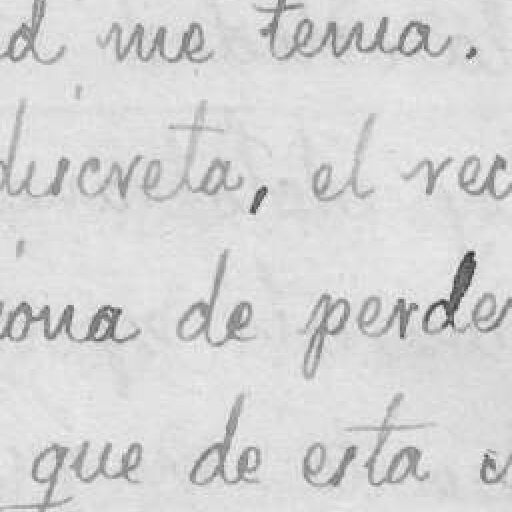 d me tenia.
discreta, el rec
iona de perder
que de esta